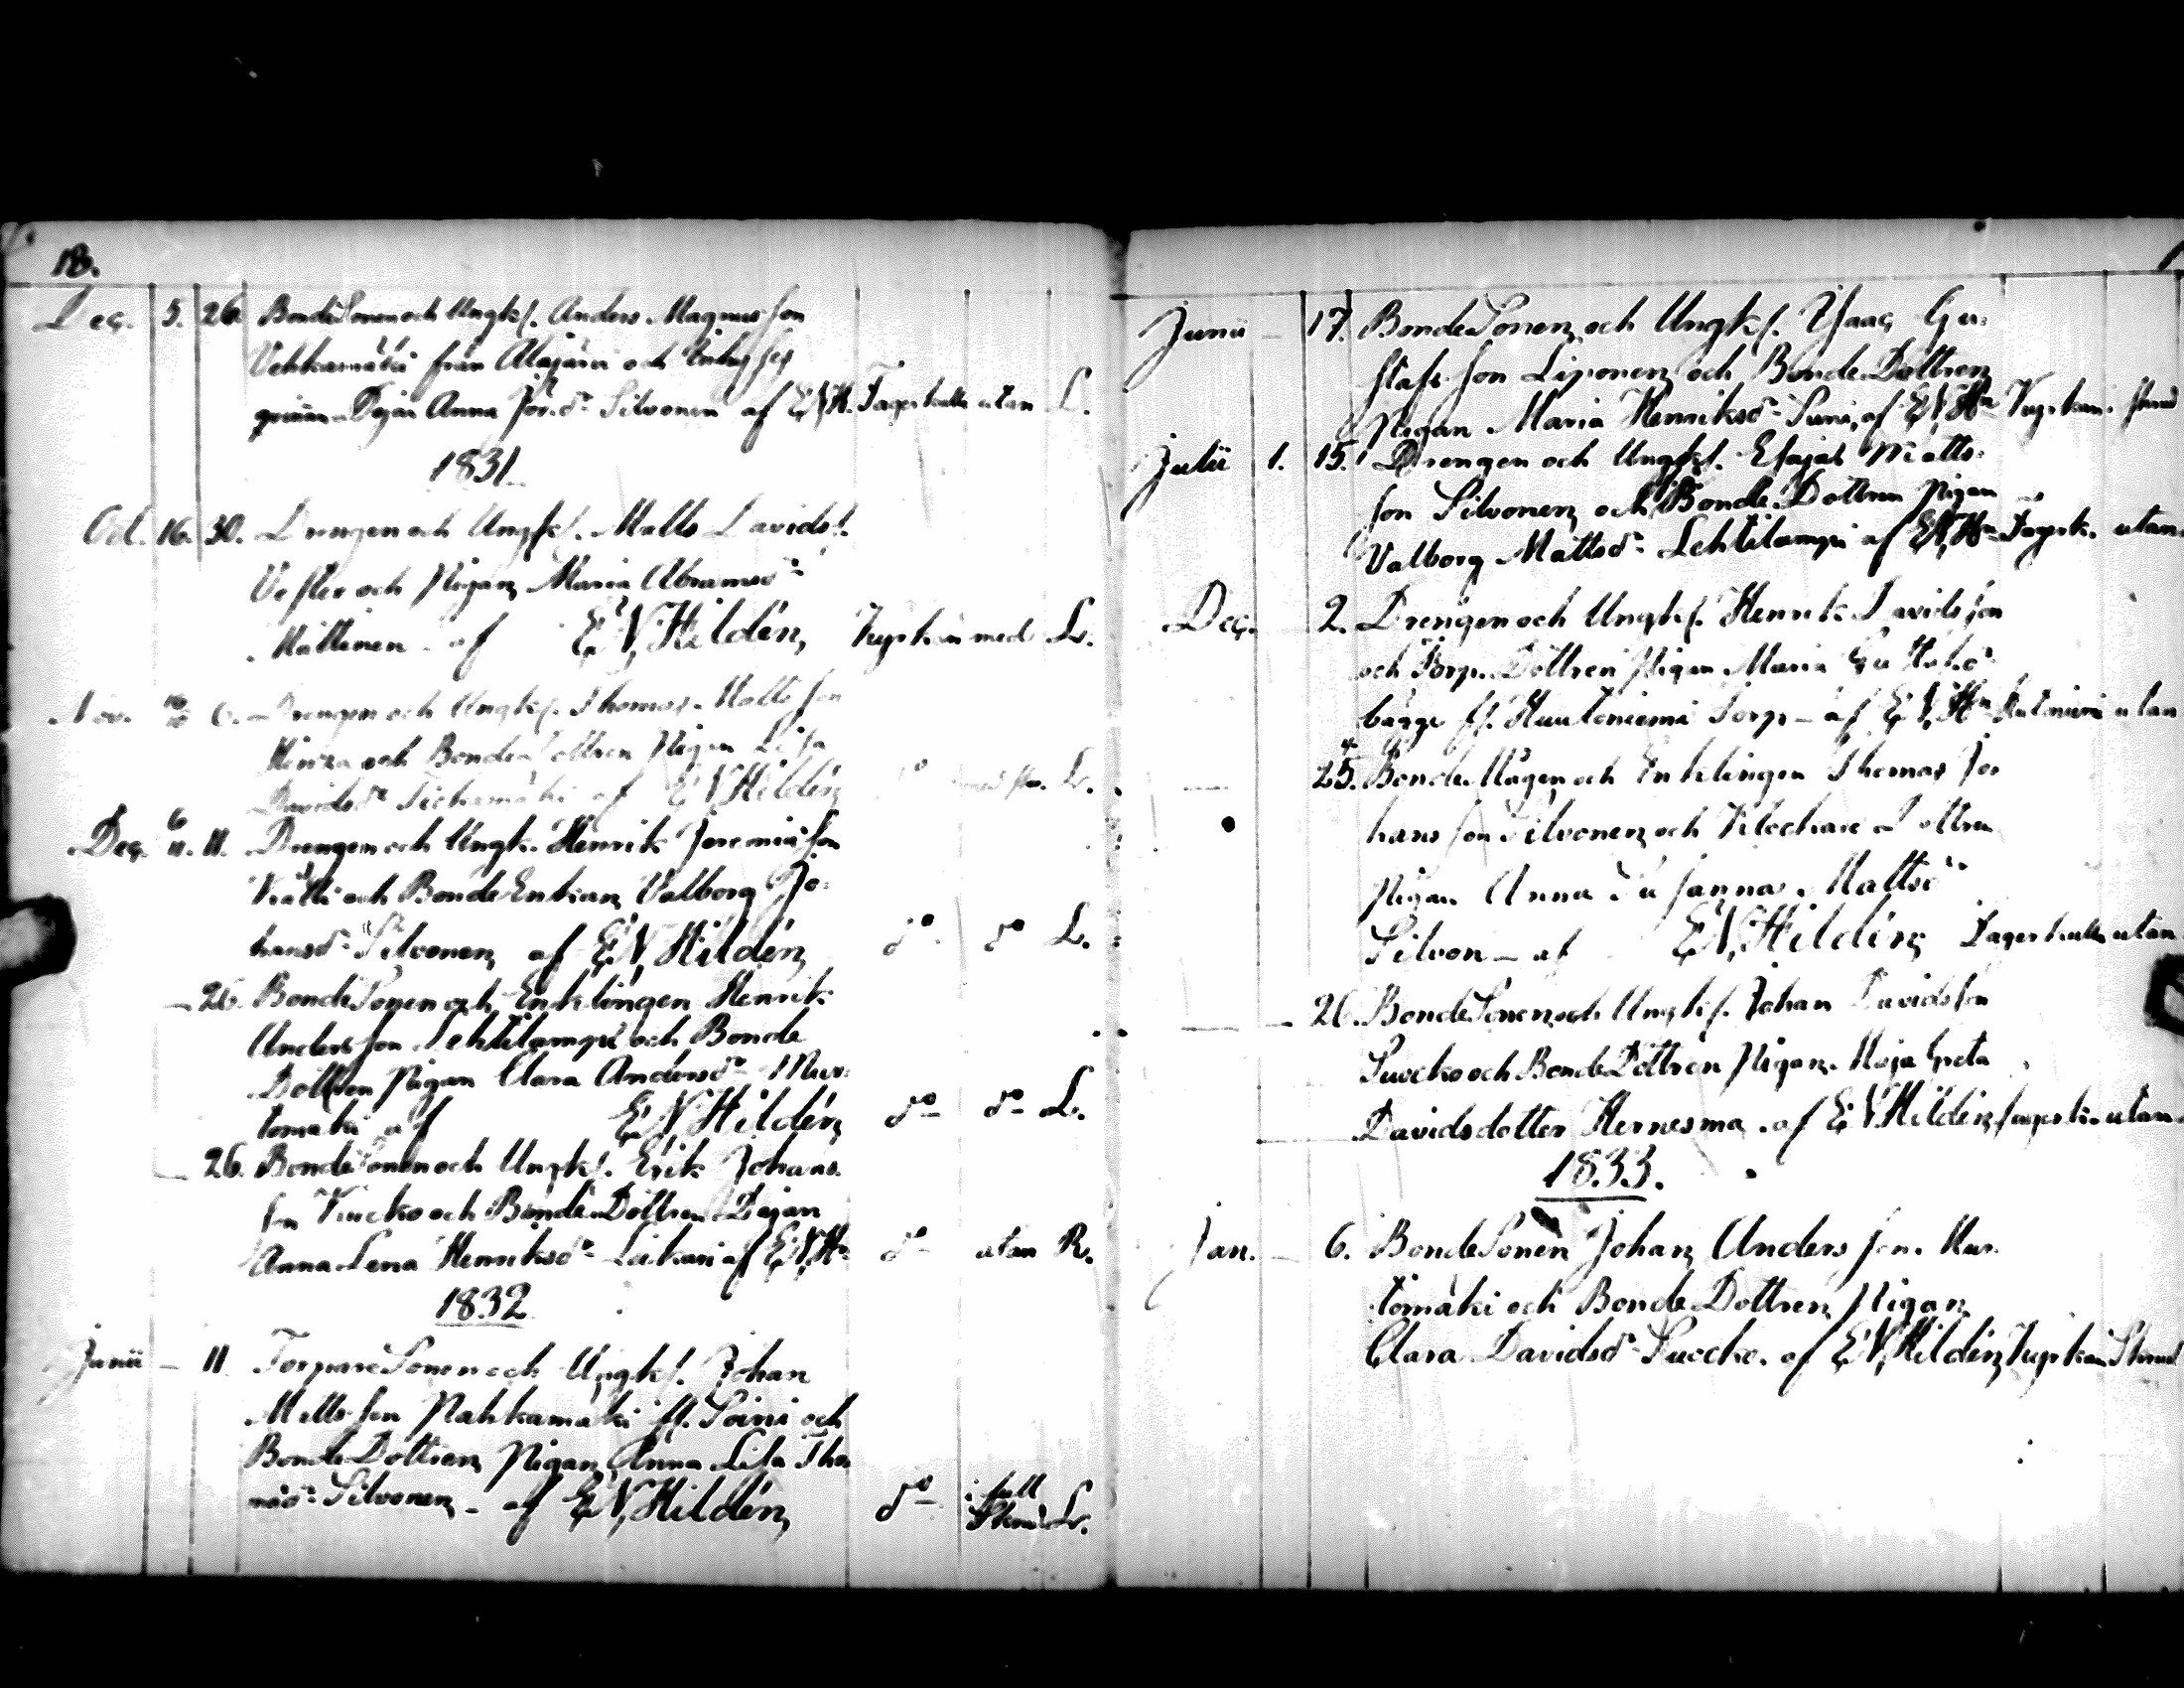 18.
Dec. 5. 26. BondeSonen och Ungk. Anders Magnus son
Vehkamäki från Alajärvi och
Pigan Anna Joh.dr Silvonen af E.N.H. Dagerhulla utan L.
1831.
Oct. 16. 30. Drengen och Ungk. Matts Davids
Vesler och Pigan Maria Abramsdr
Mattinen af E.N. Hildén, Kyrkan med L.
Nov. 6. Drengen och Ungk. Thomas Matts son
och Bonde Dottren Pigan Lisa
Davidsdr af E N Hildén do L.
Dec. 6 11. 11. Drengen och Ungk. Henrik Jeremiæ son
Kätti och Bonde Enkan Valborg Jo-
hansdr Silvonen af E.N. Hildén do do L.
— 26. BondeSonen och Enklingen Henrik
Anders son Lehtilampi och Bonde
Dottren Pigan Clara Andersdr Mur-
tomäki af E.N. Hildén do do L.
— 26. BondeSonen och Ungk. Erik Johans
son Kucko och Bonde Dottren Dejan
Anna Lena Henriksdr Leikari af E.N.Hn do utan R.
1832
Junii — 11. TorpareSonen och Ungk. Johan
Matts son Pahkamäki fr. Soini och
Bonde Dottren Pigan Anna Lisa Tho-
masdr Silvonen af E.N. Hildén, do i full Skrud L.
Junii — 17. BondeSonen och Ungk. Isaac Gu-
staf son Liponen och Bonde Dottren
Pigan Maria Henriksdr Suni, af E.N.Hn Kyrkan
Julii 1. 15. Drengen och Ungk. Esajas Matts-
son Silvonen och Bonde Dottren Pigan
Valborg Mattsdr Lehtilampi af E.N.Hn Dagerk. utan
Dec. 2. Drengen och Ungk. Henrik Davids son
och Torp. Dottren Pigan Maria
fr. Huutoniemi Torp af E.N.Hn utan
— 25. Bonde Mågen och Enklingen Thomas Jo-
hans son Silvonen och Klockare Dottren
Pigan Anna Susanna Mattsdr
Silvon af E.N. Hildén Dagerhulla utan
— 26. BondeSonen och Ungk. Johan Davids son
Suocko och Bonde Dottren Pigan Maja Greta
Davidsdotter Hernesma af E.N. Hildén utan
1833.
Jan. — 6. BondeSonen Johan Anders son Mur-
tomäki och Bonde Dottren Pigan
Clara Davidsdr Suocko af E.N. Hildén, Kyrkan Skrud